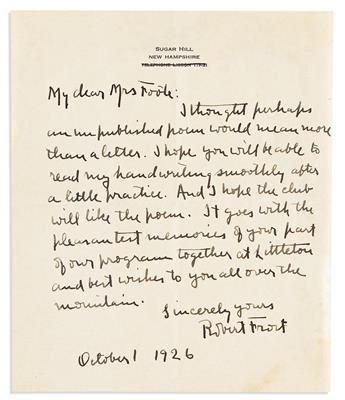 SUGAR HILL
NEW HAMPSHIRE
TELEPHONE LISBON
My dear Mrs Foote:
I thought perhaps
an unpublished poem would mean more
than a letter. I hope you will be able to
read my handwriting smoothly after
a little practice. And I hope the club
will like the poem. It goes with the
pleasantest memories of your part
of our program together at Littleton
and best wishes to you all over the
mountain.
Sincerely yours
Robert Frost
October 1 1926